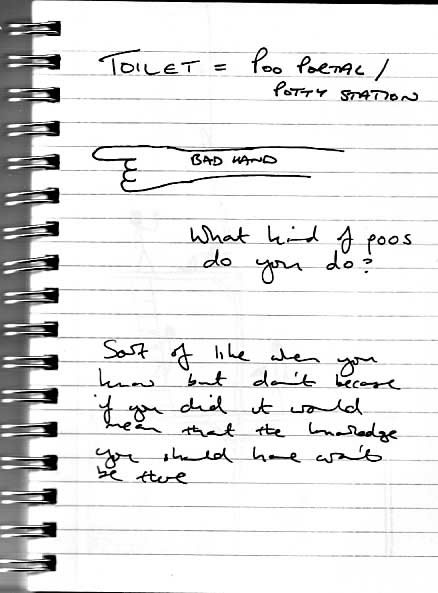 TOILET = POO PORTAL /
POTTY STATION
BAD HAND
What kind of poos
do you do?
Sort of like when you
know but don't because
if you did it would
mean that the knowledge
you should have won't
be there